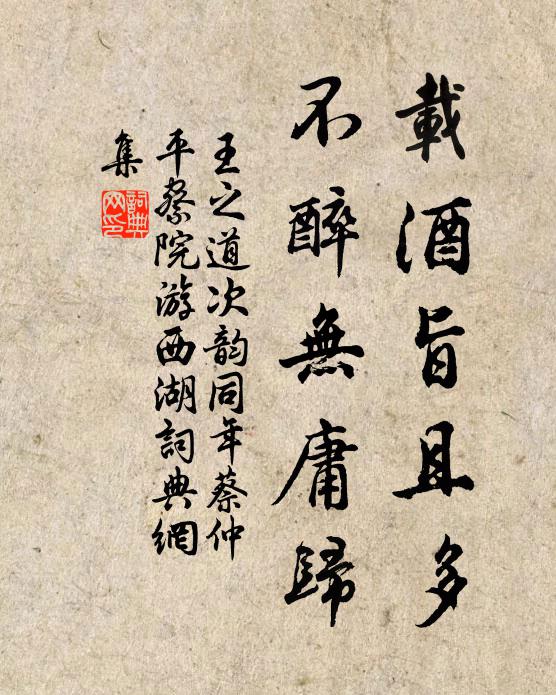 載酒旨且多
不醉無庸歸
王之道次韵同年蔡仲
平察院游西湖詞典網
集
詞典
网印